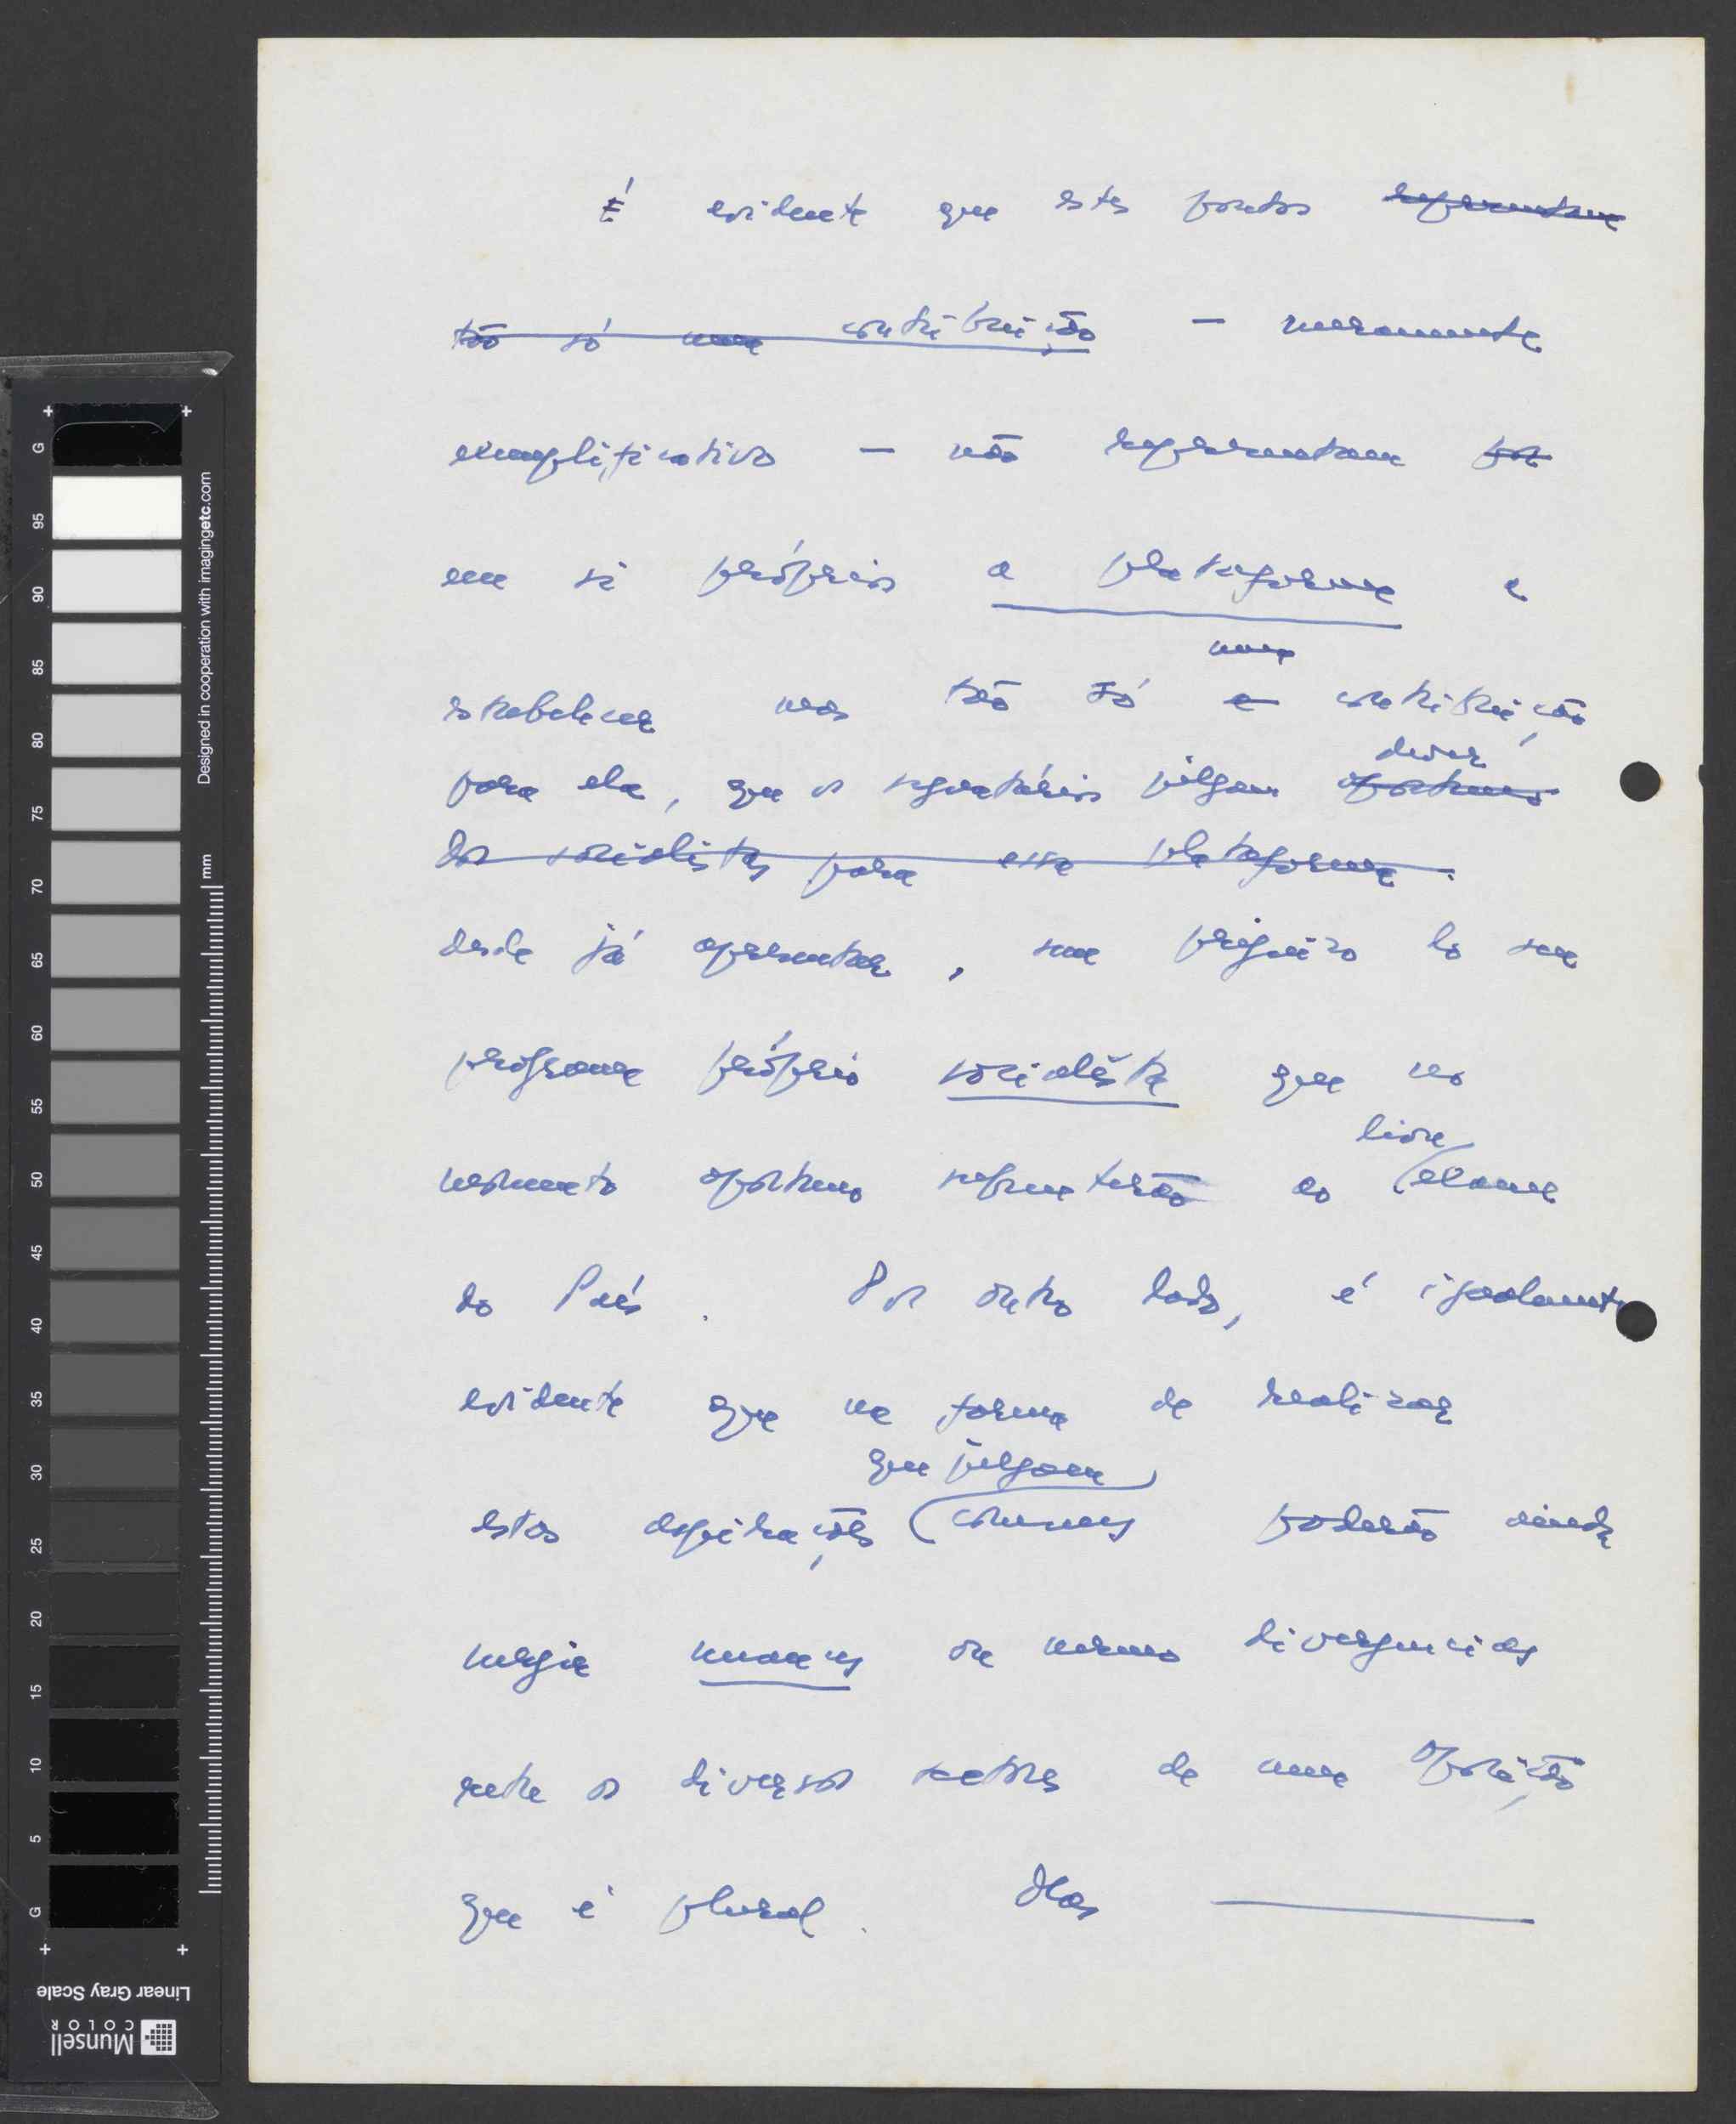 É evidente que estes pontos representam
tão só uma contribuição — meramente
exemplificativos — não representam por
em si próprios a plataforma a
uma
estabelecer mas tão só a contribuição
dever
para ela, que os signatários julgam oportuno
dos socialistas para essa plataforma.
desde já apresentar, sem prejuízo do seu
programa próprio socialista que no
livre
momento oportuno submeterão ao exame
do País. Por outro lado, é igualmente
evidente que na forma de realizar
que julgam
estas aspirações comuns poderão ainda
surgir nuances ou mesmo divergencias
entre os diversos sectores de uma Oposição
que é plural. Mas
G
95
90
85
80
75
70
65
60
55
50
45
40
35
30
25
20
15
10
5
G
mm
Designed in cooperation with imagingetc.com
Linear Gray Scale
Munsell
COLOR